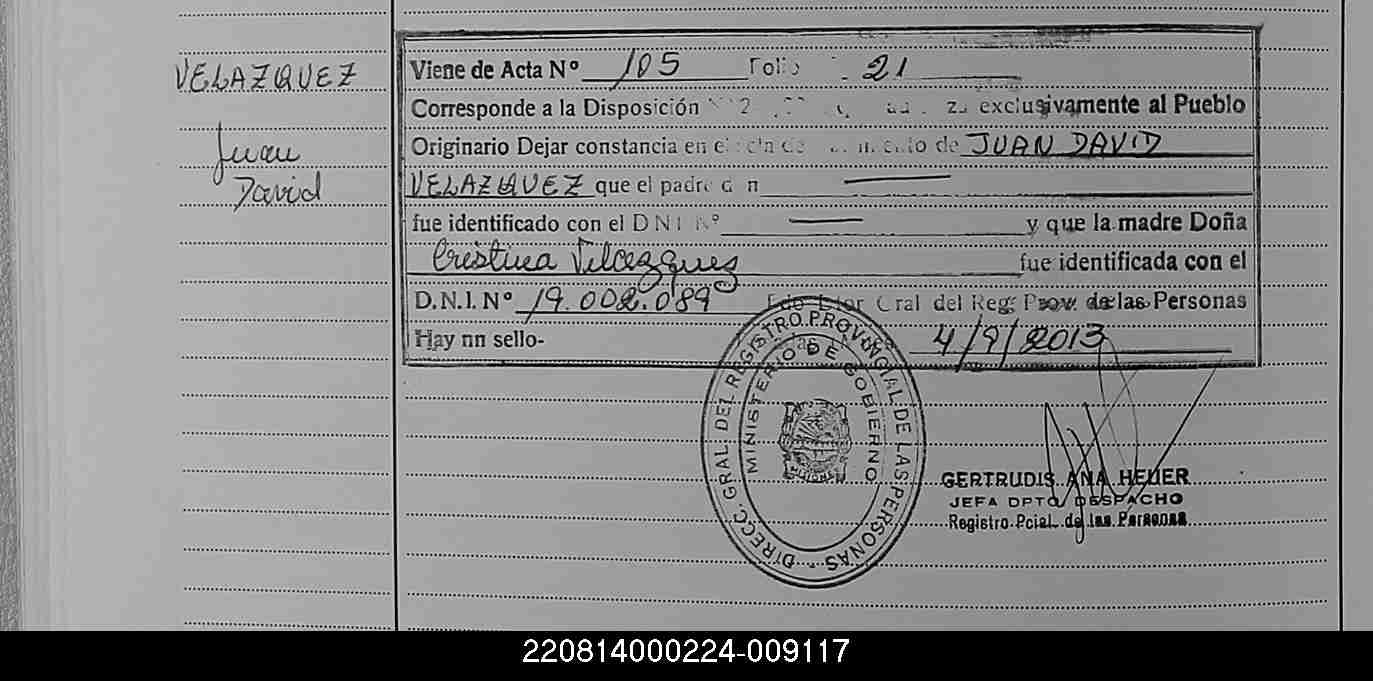 VELAZQUEZ
Juan
David
Viene de Acta Nº 105 Folio 21
Corresponde a la Disposición Nº 2 exclusivamente al Pueblo
Originario Dejar constancia en el de JUAN DAVID
VELAZQUEZ que el padre don —
fue identificado con el DNI Nº — y que la madre Doña
Cristina Velazquez fue identificada con el
D.N.I. Nº 19.002.089 Fdo Dtor Gral del Reg: Prov. de las Personas
Hay nn sello- 4/9/2013
DIRECC. GRAL. DEL REGISTRO PROVINCIAL DE LAS PERSONAS
MINISTERIO DE GOBIERNO
MISIONES
GERTRUDIS ANA HEUER
JEFA DPTO DESPACHO
Registro Pcial. de las Personas
220814000224-009117